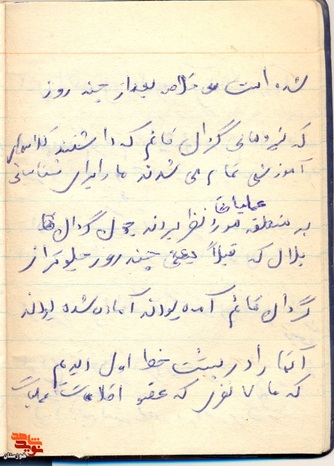 شده است و خلاصه بعد از چند روز
که نیروهای گردان قائم که داشتند کلاسهای
آموزشی تمام می شدند ما را برای شناسائی
به منطقه مورد نظر عملیاتها بردند چون گردان
بلال که قبلاً یعنی چند روز جلوتر از
گردان قائم آمده بودند آماده شده بودند
آنها را در پشت خط اول دیدم
که ما ۷ نفری که عضو اطلاعات عملیات
شاهد
نوید
خوزستان